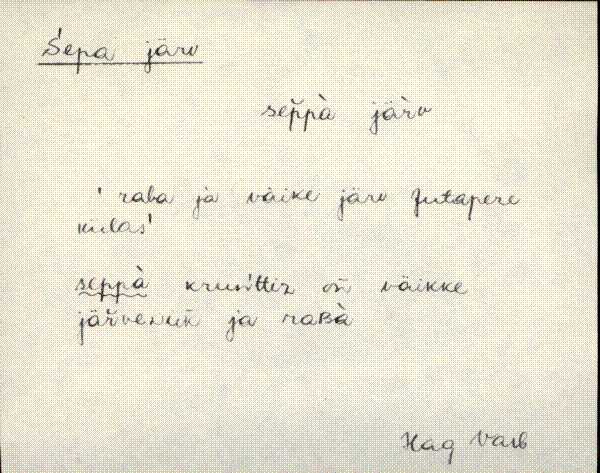 Sepa järv
sep̆pà järv
' raba ja väike järv Jutapere
külas'
sep̆pà krun̆ttiz on̆ väikke
jär̆vekkene ja raʙà
Hag Var̀b